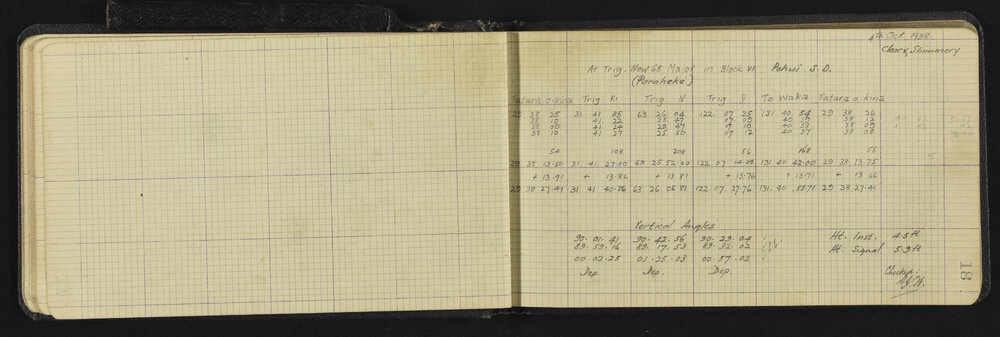 4th Oct. 1938
Clear & Shimmery
At Trig. New 68 Major in Block VI Pohui S.D.
(Paraheke)
Tatara-o-kina Trig K1 Trig N Trig D Te Waka Tatara-o-kina
29 38 25 31 41 35 63 26 04 122. 07 25 131 40 54 29 38 26
38 10 41 22 25 47 07 09 40 39 38 12
38 09 41 24 25 47 07 10 40 38 38 09
38 10 41 27 25 50 07 12 40 37 38 08
54 108 208 56 168 55
29 38 13.50 31 41. 27.00 63 25 52.00 122 07 14.00 131 40 42.00 29 38. 13.75
+ 13.91 + 13.86 + 13.81 + 13.76 + 13.71 + 13 66
29 38 27.41 31 41 40.86 63 26 05 81 122. 07. 27.76 131. 40 55.71 29 38 27.41
Vertical Angles
90. 01. 41 90. 42. 56 90. 29. 04 Ht. Inst. 4.5 ft
89. 59. 16 89. 17. 53 89. 32. 02 Ht. Signal 5.9 ft
00. 02. 25 01. 25. 03 00. 57. 02
Dep. Dep. Dep.
Checked:
18